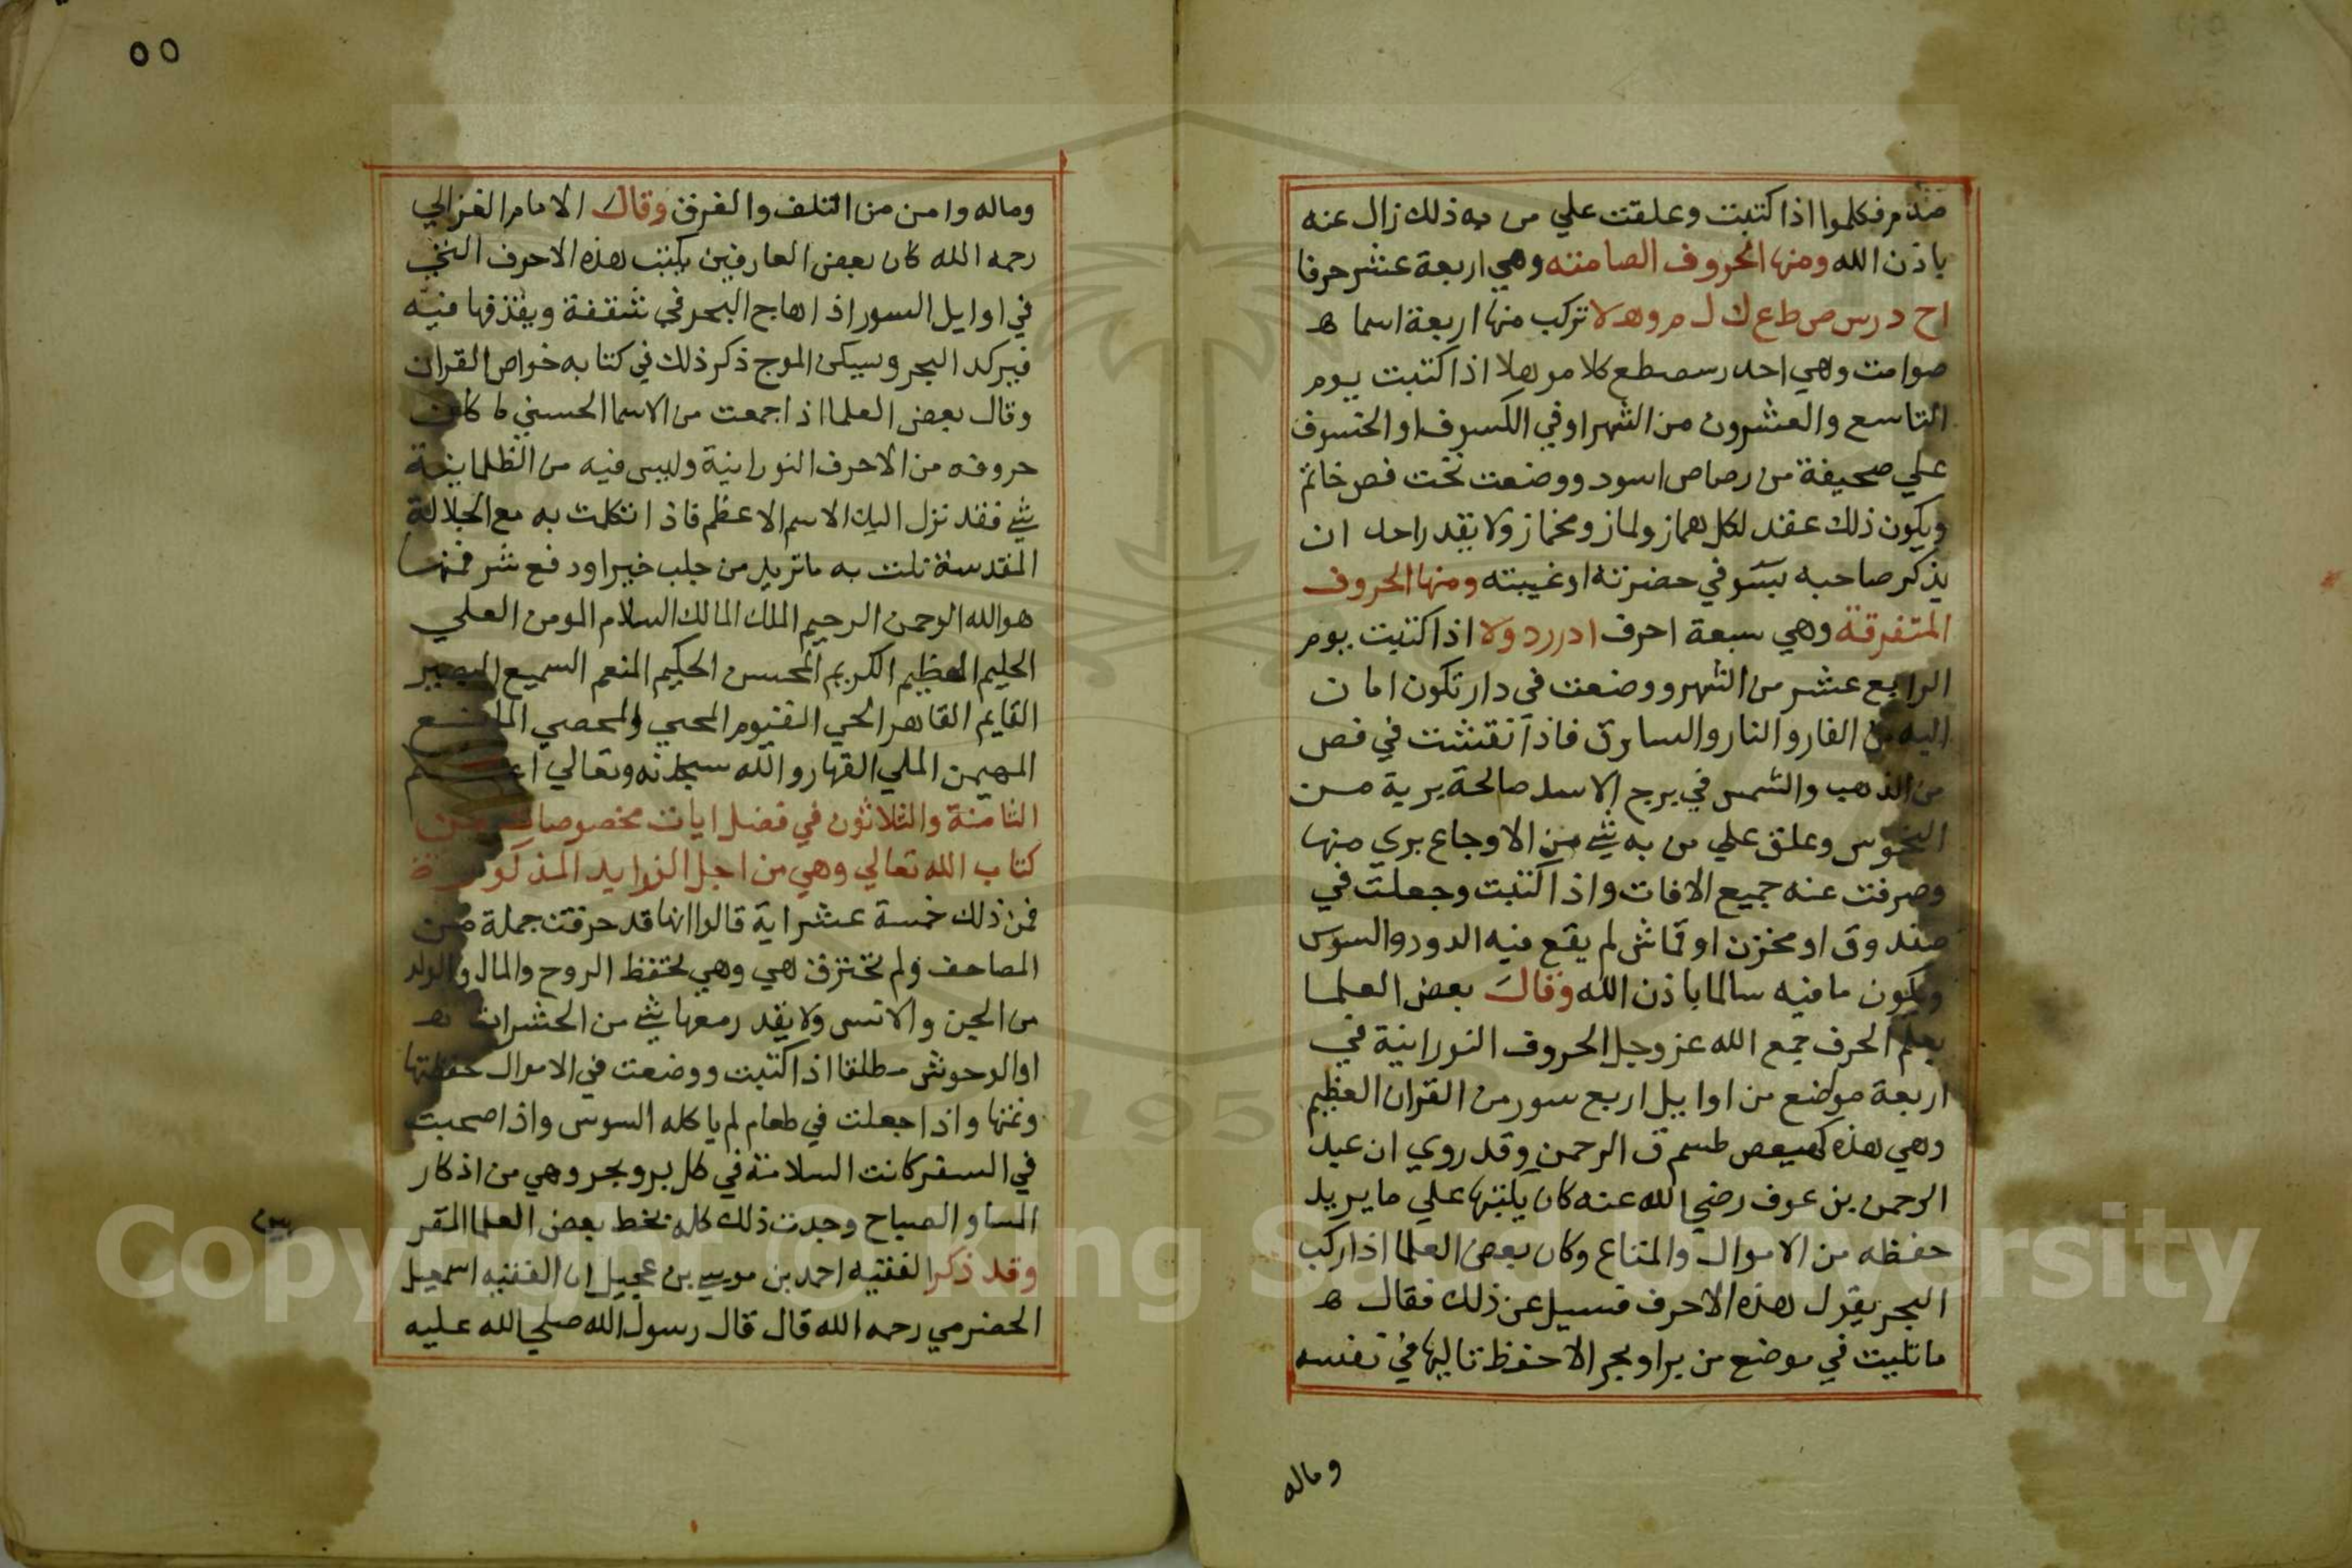 صندم فكلموا اذا كتبت وعلقت علي من به ذلك زال عنه
باذن الله ومنها الحروف الصامته وهي اربعة عشر حرفا
اح د رس ص ط ع ك ل م و ه لا تركب منها اربعة اسما ه
صوامت وهي احد رسصطع كلا موهلا اذا كتبت يوم
التاسع والعشرون من الشهر اوفي الكسوف او الخسوف
علي صحيفة من رصاص اسود ووضعت تحت فص خاتم
ويكون ذلك عقد لكل هماز ولماز ومخماز ولا يقدر احد ان
يذكر صاحبه بسو في حضرته او غيبته ومنها الحروف
المتفرقة وهي سبعة احرف ادررد ولا اذا كتبت يوم
الرابع عشر من الشهر ووضعت في دار تكون امان
اليه من الفار والنار والسارق فاذا نقشت في فص
من الذهب والشمس في برج الاسد صالحة برية من
النحوس وعلق علي من به شي من الاوجاع بري منها
وصرفت عنه جميع الافات واذا كتبت وجعلت في
صندوق او مخزن او قماش لم يقع فيه الدود والسوس
ويكون مافيه سالما باذن الله وقال بعض العلما
بعلم الحرف جمع الله عز وجل الحروف النورانية في
اربعة مواضع من اوايل اربع سور من القران العظيم
وهي هذه كهيعص طسم ق الرحمن وقد روي ان عبد
الرحمن بن عوف رضي الله عنه كان يكتبها علي ما يريد
حفظه من الاموال والمتاع وكان بعض العلما اذا ركب
البحر يقول هذه الاحرف فسيل عن ذلك فقال ه
ما تليت في موضع من بر او بحر الا حفظ تاليها في نفسه
وماله
٥٥
وماله وامن من التلف والغرق وقال الامام الغزالي
رحمه الله كان بعض العارفين يكتب هذه الاحرف التي
في اوايل السور اذا هاج البحر في شقفة ويقذفها فيه
فيركد البحر ويسكن الموج ذكر ذلك في كتابه خواص القران
وقال بعض العلما اذا جمعت من الاسما الحسني ما كانت
حروفه من الاحرف النورانية وليس فيه من الظلمانية
شي فقد نزل اليك الاسم الاعظم فاذا تكلت به مع الجلالة
المقدسة نلت به ما تريد من جلب خير او دفع شر فمنها
هو الله الرحمن الرحيم الملك المالك السلام المومن العلي
الحليم العظيم الكريم المحسن الحكيم المنعم السميع البصير
القايم القاهر الحي القيوم المحيي والمحصي المانع
المهيمن الملي القهار والله سبحانه وتعالي اعلم
الثامنة والثلاثون في فضل ايات مخصوصات من
كتاب الله تعالي وهي من اجل الزوايد المذكورة
فمن ذلك خمسة عشر اية قالوا انها قد حرقت جملة من
المصاحف ولم تحترق هي وهي لحفظ الروح والمال والولد
من الجن والانس ولا يقدر معها شي من الحشرات
او الوحوش مطلقا اذا كتبت ووضعت في الاموال حفظتها
ونمتها واذا جعلت في طعام لم ياكله السوس واذا صحبت
في السفر كانت السلامة في كل بر وبحر وهي من اذكار
المسا والصباح وجدت ذلك كله بخط بعض العلما المقر
وقد ذكر الفقيه احمد بن موسي بن عجيل ان الفقيه اسمعيل
الحضرمي رحمه الله قال قال رسول الله صلي الله عليه
Copyright © King Saud University
195